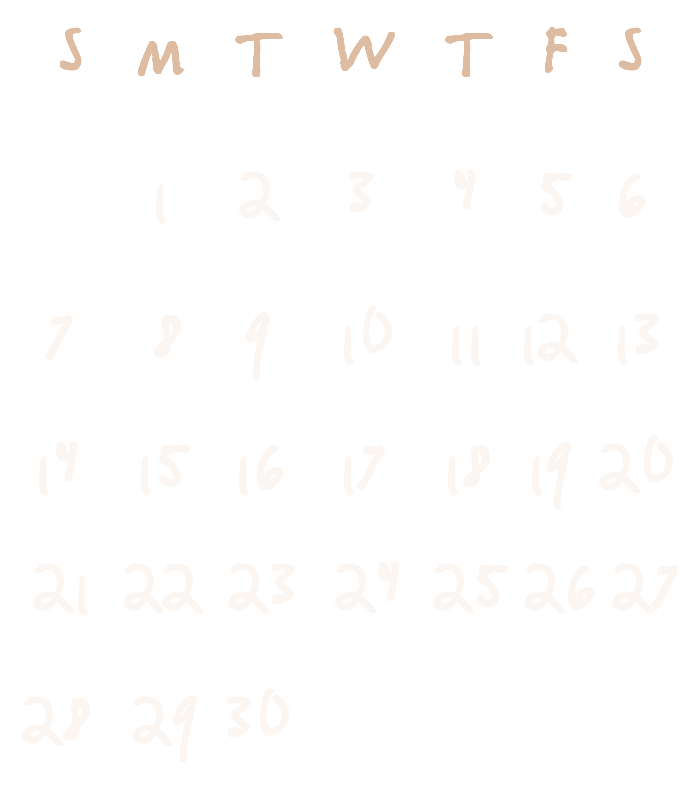 S M T W T F S
1 2 3 4 5 6
7 8 9 10 11 12 13
14 15 16 17 18 19 20
21 22 23 24 25 26 27
28 29 30